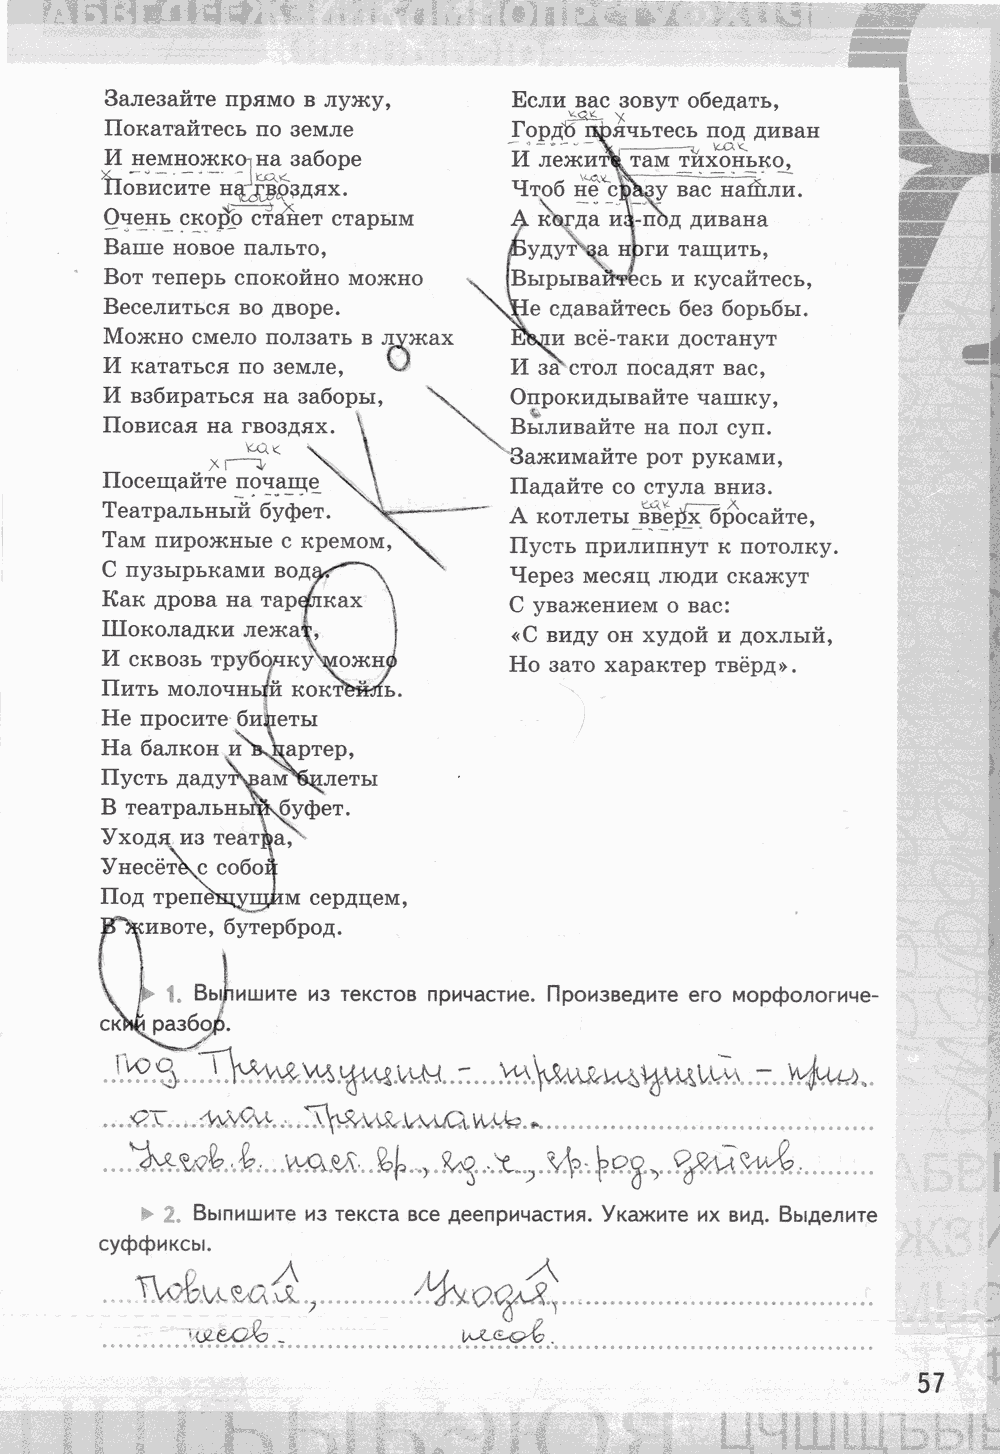 Залезайте прямо в лужу,
Покатайтесь по земле
И немножко на заборе
как
Повисите на гвоздях.
когда
Очень скоро станет старым
Ваше новое пальто,
Вот теперь спокойно можно
Веселиться во дворе.
Можно смело ползать в лужах
И кататься по земле,
И взбираться на заборы,
Повисая на гвоздях.
как
Посещайте почаще
Театральный буфет.
Там пирожные с кремом,
С пузырьками вода.
Как дрова на тарелках
Шоколадки лежат,
И сквозь трубочку можно
Пить молочный коктейль.
Не просите билеты
На балкон и в партер,
Пусть дадут вам билеты
В театральный буфет.
Уходя из театра,
Унесёте с собой
Под трепещущим сердцем,
В животе, бутерброд.
Если вас зовут обедать,
как
Гордо прячьтесь под диван
как
И лежите там тихонько,
как
Чтоб не сразу вас нашли.
А когда из-под дивана
Будут за ноги тащить,
Вырывайтесь и кусайтесь,
Не сдавайтесь без борьбы.
Если всё-таки достанут
И за стол посадят вас,
Опрокидывайте чашку,
Выливайте на пол суп.
Зажимайте рот руками,
Падайте со стула вниз.
как
А котлеты вверх бросайте,
Пусть прилипнут к потолку.
Через месяц люди скажут
С уважением о вас:
«С виду он худой и дохлый,
Но зато характер твёрд».
1. Выпишите из текстов причастие. Произведите его морфологиче-
ский разбор.
Под Трепещущим – трепещущий – приз.
от гл. Трепетать.
Несов. в. наст. вр., ед. ч., ср. род, действ.
2. Выпишите из текста все деепричастия. Укажите их вид. Выделите
суффиксы.
Повисая, Уходя,
несов. несов.
57